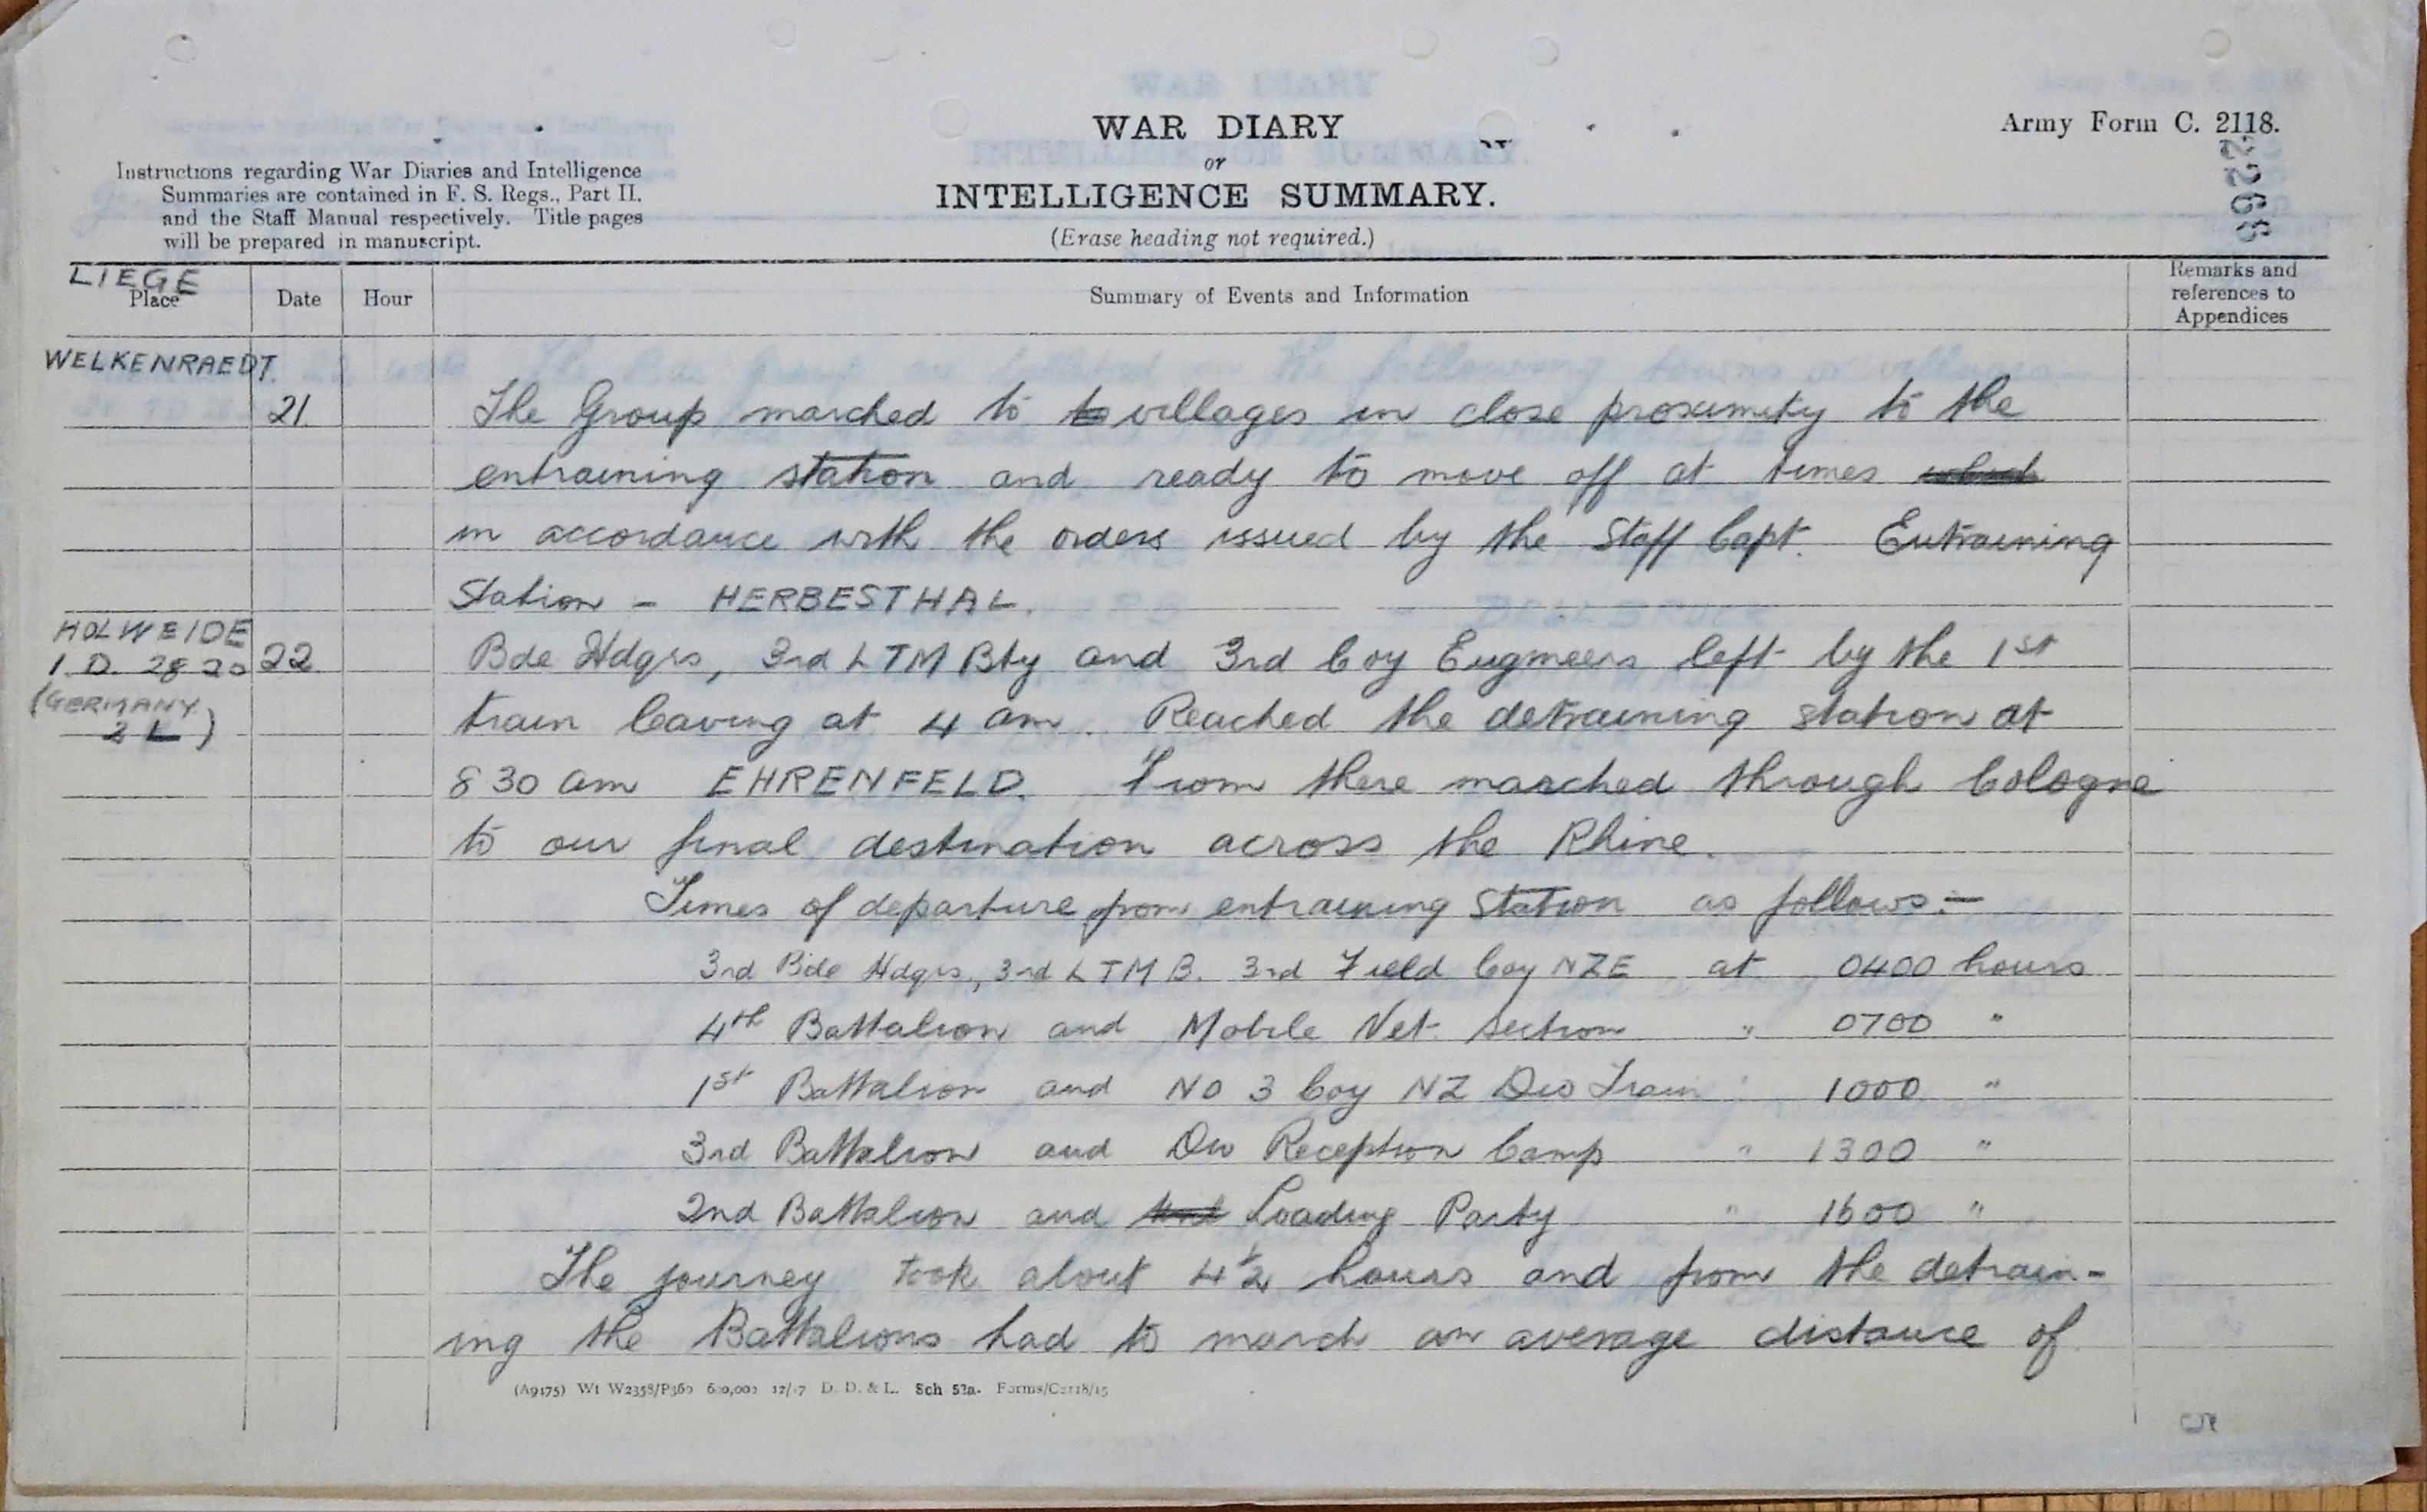 WAR DIARY
or
INTELLIGENCE SUMMARY.
(Erase heading not required.)
Army Form C. 2118.
Instructions regarding War Diaries and Intelligence
Summaries are contained in F. S. Regs., Part II.
and the Staff Manual respectively. Title pages
will be prepared in manuscript.
LIEGE
Place Date Hour Summary of Events and Information Remarks and
references to
Appendices
WELKENRAEDT.
21. The Group marched to to villages in close proximity to the
entraining station and ready to move off at times which
in accordance with the orders issued by the Staff Capt. Entraining
Station - HERBESTHAL.
HOLWEIDE
1. D. 28 20
(GERMANY
2 L)
22 Bde Hdqrs, 3rd LTM Bty and 3rd Coy Engineers left by the 1st
train leaving at 4 am. Reached the detraining station at
8 30 am EHRENFELD. From there marched through Cologne
to our final destination across the Rhine.
Times of departure from entraining station as follows:-
3rd Bde Hdqrs, 3rd LTMB. 3rd Field Coy NZE at 0400 hours
4th Battalion and Mobile Vet. Section " 0700 "
1st Battalion and No 3 Coy NZ Div Train " 1000 "
3rd Battalion and Div Reception Camp " 1300 "
2nd Battalion and Loading Party " 1600 "
The journey took about 4½ hours and from the detrain-
ing the Battalions had to march an average distance of
(A9175) Wt W2358/P360 600,000 12/17 D. D. & L. Sch 52a. Forms/C2118/15